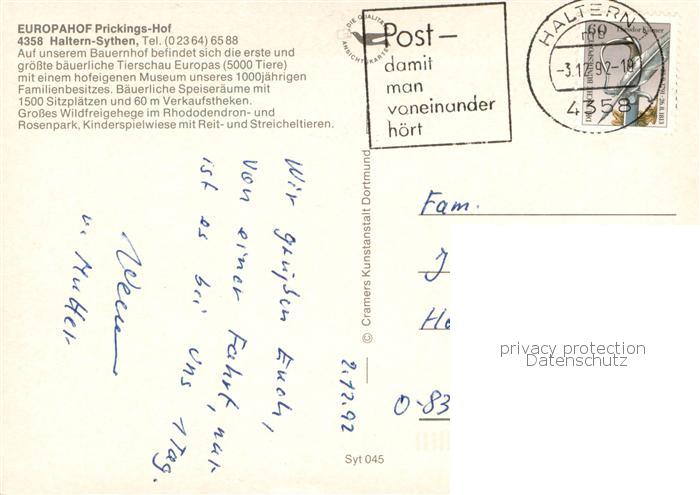 EUROPAHOF Prickings-Hof
4358 Haltern-Sythen, Tel. (0 23 64) 65 88
Auf unserem Bauernhof befindet sich die erste und
größte bäuerliche Tierschau Europas (5000 Tiere)
mit einem hofeigenen Museum unseres 1000jährigen
Familienbesitzes. Bäuerliche Speiseräume mit
1500 Sitzplätzen und 60 m Verkaufstheken.
Großes Wildfreigehege im Rhododendron- und
Rosenpark, Kinderspielwiese mit Reit- und Streicheltieren.
DIE QUALITÄTS
ANSICHTSKARTE
Post –
damit
man
voneinander
hört
HALTERN
-3.12.92-18
4358
60
Theodor Körner
2.12.92
Wir grüßen Euch,
von einer Fahrt, nur
ist es bei uns 1 Tag.
u. Mutter
© Cramers Kunstanstalt Dortmund
Syt 045
Fam.
J
Ha
O-83
privacy protection
Datenschutz